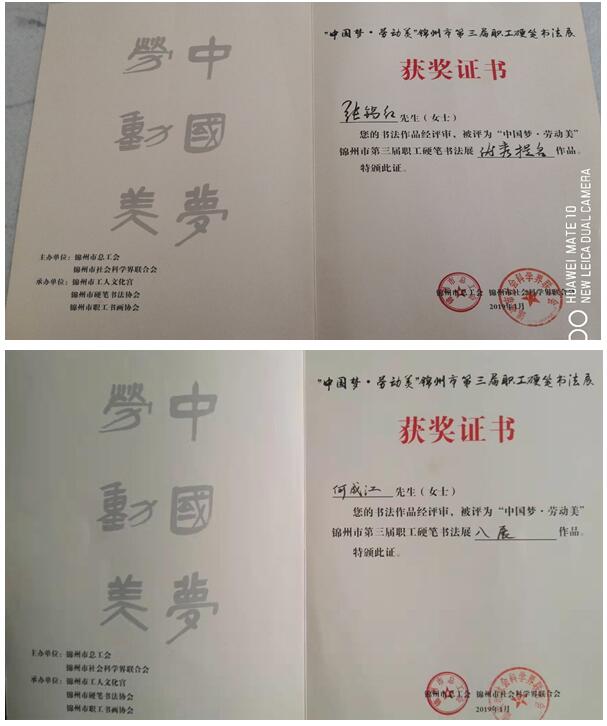 中國夢
勞動美
主办单位：锦州市总工会
锦州市社会科学界联合会
承办单位：锦州市工人文化宫
锦州市硬笔书法协会
锦州市职工书画协会
“中国梦·劳动美”锦州市第三届职工硬笔书法展
获奖证书
张锦红 先生（女士）
您的书法作品经评审，被评为“中国梦·劳动美”
锦州市第三届职工硬笔书法展 优秀提名 作品。
特颁此证。
锦州市总工会 锦州市社会科学界联合会
2019年1月
HUAWEI MATE 10
NEW LEICA DUAL CAMERA
中國夢
勞動美
主办单位：锦州市总工会
锦州市社会科学界联合会
承办单位：锦州市工人文化宫
锦州市硬笔书法协会
锦州市职工书画协会
“中国梦·劳动美”锦州市第三届职工硬笔书法展
获奖证书
何成江 先生（女士）
您的书法作品经评审，被评为“中国梦·劳动美”
锦州市第三届职工硬笔书法展 入展 作品。
特颁此证。
锦州市总工会 锦州市社会科学界联合会
2019年1月